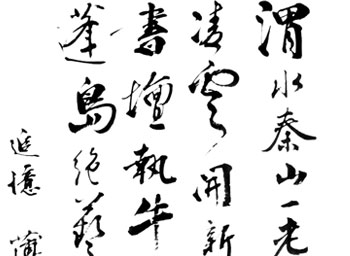 渭水秦山一老
凌雲開新
書壇執牛
蓬島絕藝
追憶